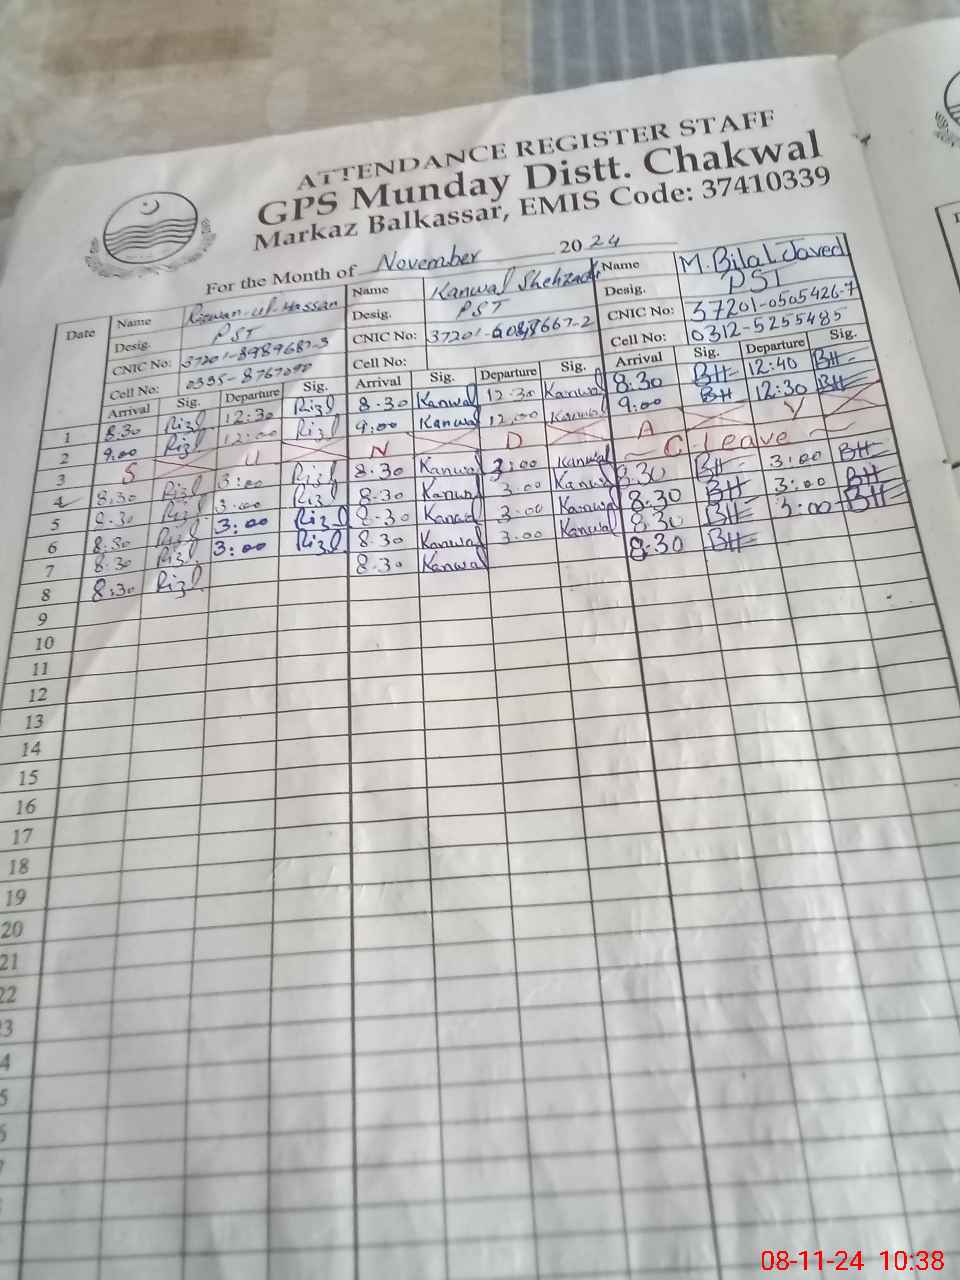 ATTENDANCE REGISTER STAFF
GPS Munday Distt. Chakwal
Markaz Balkassar, EMIS Code: 37410339
For the Month of November 2024
Date Name Rizwan-ul-Hassan Name Kanwal Shehzadi Name M. Bilal Javed
Desig. PST Desig. PST Desig. PST
CNIC No: 37201-8989687-3 CNIC No: CNIC No: 37201-0505426-7
Cell No: 0335-8767090 Cell No: Cell No: 0312-5255485
Arrival Sig. Departure Sig. Arrival Sig. Departure Sig. Arrival Sig. Departure Sig.
1 8:30 Rizl 12:30 Rizl 8:30 Kanwal 12:30 Kanwal 8:30 BH 12:40 BH
2 9:00 Rizl 12:00 Rizl 9:00 Kanwal 12:00 Kanwal 9:00 BH 12:30 BH
3 S U N D A Y
4 8:30 Rizl 3:00 Rizl 8:30 Kanwal 3:00 Kanwal C leave
5 8:30 Rizl 3:00 Rizl 8:30 Kanwal 3:00 Kanwal 8:30 BH 3:00 BH
6 8:30 Rizl 3:00 Rizl 8:30 Kanwal 3:00 Kanwal 8:30 BH 3:00 BH
7 8:30 Rizl 3:00 Rizl 8:30 Kanwal 3:00 Kanwal 8:30 BH 3:00 BH
8 8:30 Rizl 8:30 Kanwal 8:30 BH
9
10
11
12
13
14
15
16
17
18
19
20
21
22
3
4
5
08-11-24 10:38